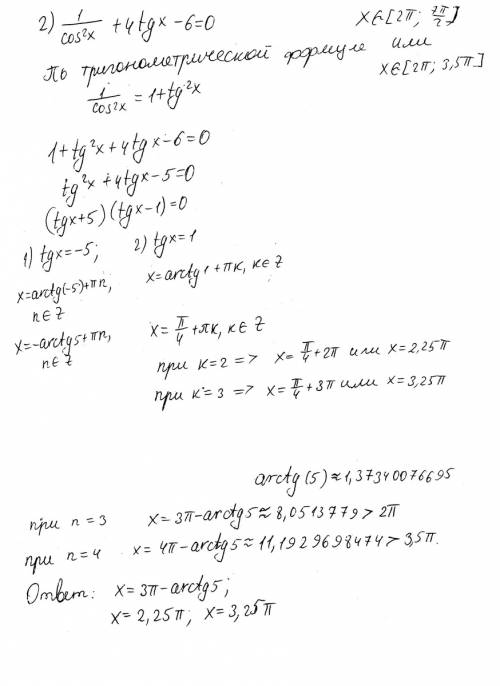 2) 1/cos²x + 4tgx - 6 = 0     x∈[2π; 7π/2]
По тригонометрической формуле или
x∈[2π; 3,5π]
1/cos²x = 1 + tg²x
1 + tg²x + 4tgx - 6 = 0
tg²x + 4tgx - 5 = 0
(tgx + 5)(tgx - 1) = 0
1) tgx = -5;     2) tgx = 1
x = arctg(-5) + πn,     x = arctg1 + πк, к∈Z
n∈Z
x = -arctg5 + πn,     x = π/4 + πк, к∈Z
n∈Z
при к = 2 => x = π/4 + 2π или x = 2,25π
при к = 3 => x = π/4 + 3π или x = 3,25π
arctg(5) ≈ 1,37340076695
при n = 3     x = 3π - arctg5 ≈ 8,0513779 > 2π
при n = 4     x = 4π - arctg5 ≈ 11,1929698474 > 3,5π.
Ответ: x = 3π - arctg5;
x = 2,25π; x = 3,25π